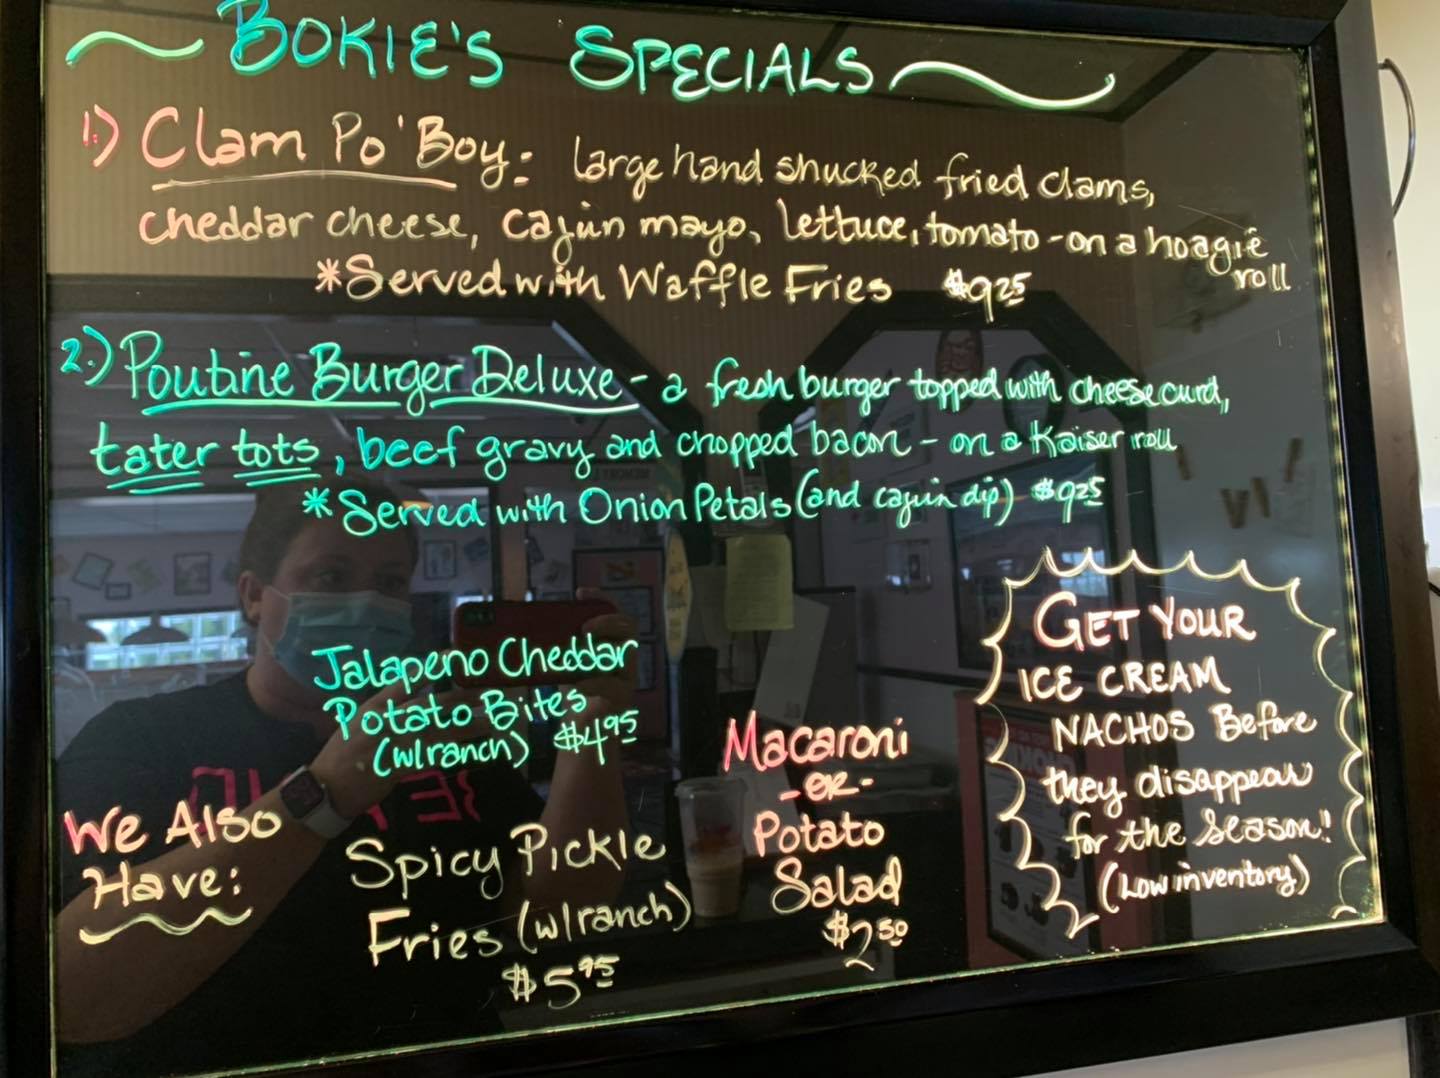 BOKIE'S SPECIALS
1.) Clam Po'Boy: large hand shucked fried clams,
cheddar cheese, cajun mayo, lettuce, tomato - on a hoagie
roll
*Served with Waffle Fries $9.25
2.) Poutine Burger Deluxe - a fresh burger topped with cheese curd,
tater tots, beef gravy and chopped bacon - on a Kaiser roll
*Served with Onion Petals (and cajun dip) $9.25
Jalapeno Cheddar
Potato Bites
(w/ranch) $4.95
We Also
Have:
Spicy Pickle
Fries (w/ranch)
$5.95
Macaroni
-OR-
Potato
Salad
$2.50
GET YOUR
ICE CREAM
NACHOS Before
they disappear
for the season!
(Low inventory)